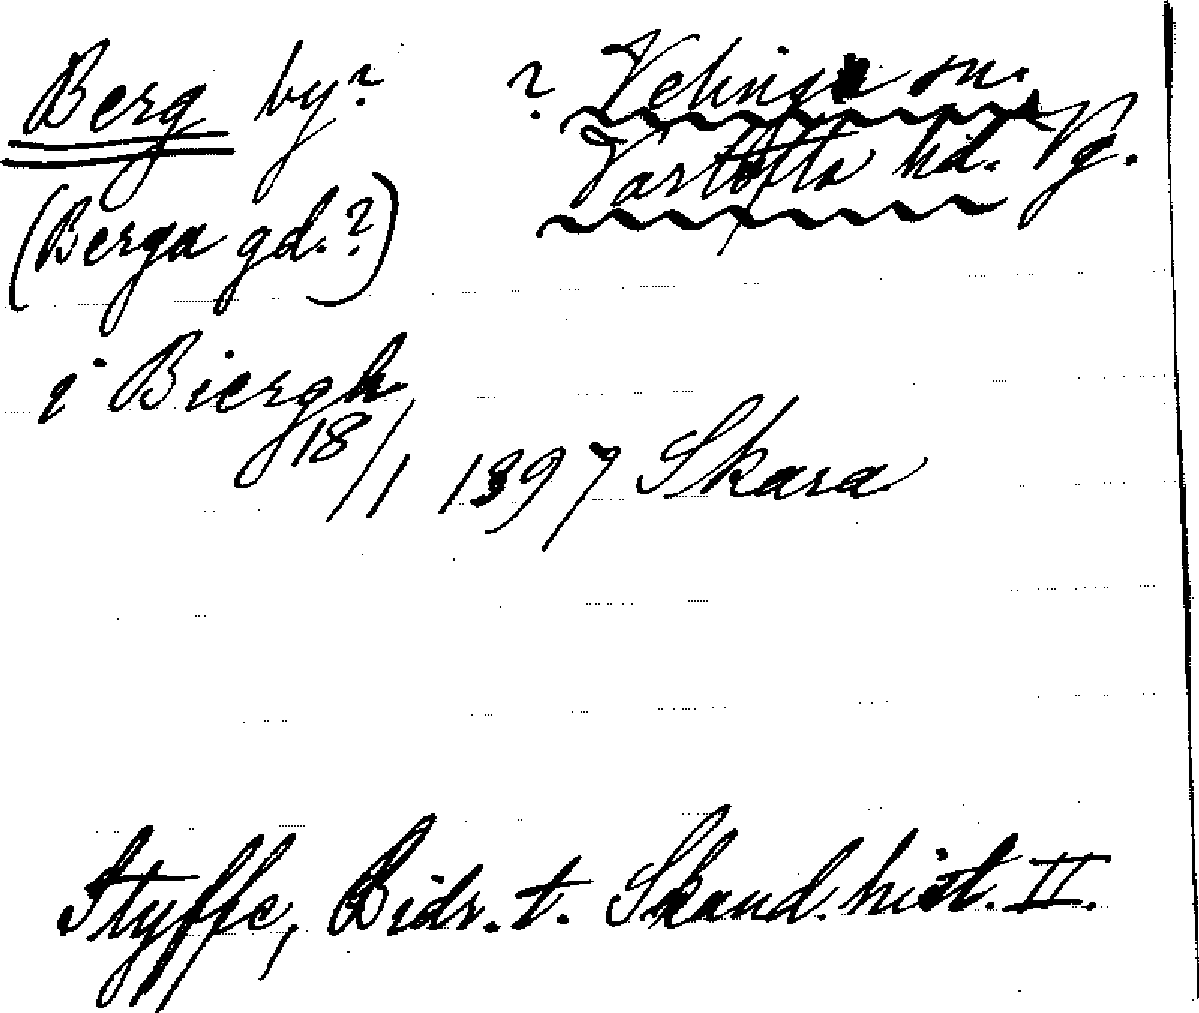 Berg by? ? Velinga sn.
Vartofta hd. Vg.
(Berga gd.?)
i Biergh
18/1 1397 Skara
Styffe, Bidr. t. Skand. hist. II.